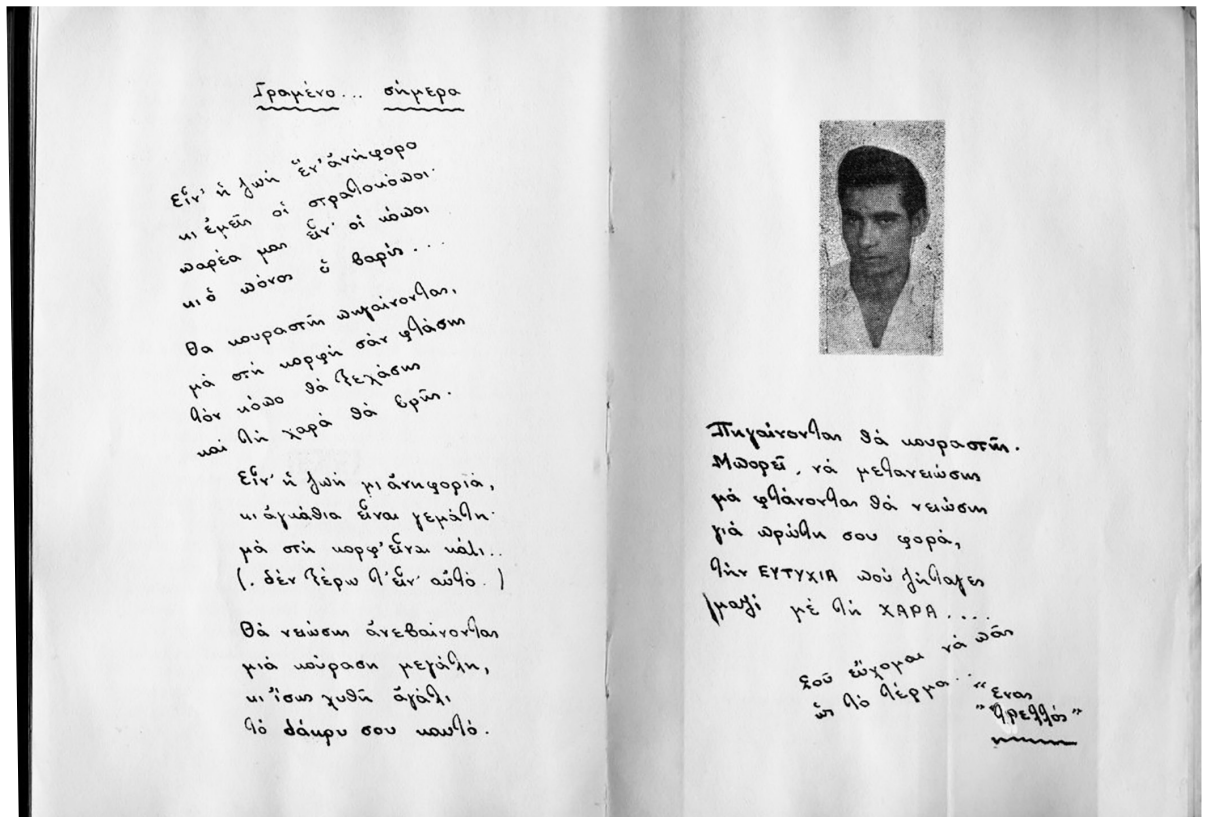 Γραμένο... σήμερα
Εἶν' ἡ ζωὴ ἕν' ἀνήφορο
κι ἐμεῖς οἱ στρατοκόποι·
παρέα μας εἶν' οἱ κόποι
κι ὁ πόνος ὁ βαρὺς...
Θα κουραστῆς πηγαίνοντας,
μὰ στὴ κορφὴ σὰν φτάσης
τὸν κόπο θὰ ξεχάσης
καὶ τὴ χαρὰ θὰ βρῆς.
Εἶν' ἡ ζωὴ μι ἀνηφοριά,
κι ἀγκάθια εἶναι γεμάτη·
μὰ στὴ κορφ' εἶναι κάτι..
(. δὲν ξέρω τ' εἶν' αὐτό. )
Θὰ νειώσης ἀνεβαίνοντας
μιὰ κούραση μεγάλη,
κι ἴσως χυθῆ ἀγάλι
τὸ δάκρυ σου καυτό.
Πηγαίνοντας θὰ κουραστῆς.
Μπορεῖ, νὰ μετανειώσης
μὰ φτάνοντας θὰ νειώσης
γιὰ πρώτη σου φορά,
τὴν ΕΥΤΥΧΙΑ ποὺ ζήταγες
μαζὶ μὲ τὴ ΧΑΡΑ....
Σοῦ εὔχομαι νὰ πᾶς
ὡς τὸ τέρμα...
"Ενας
"τρελλός"